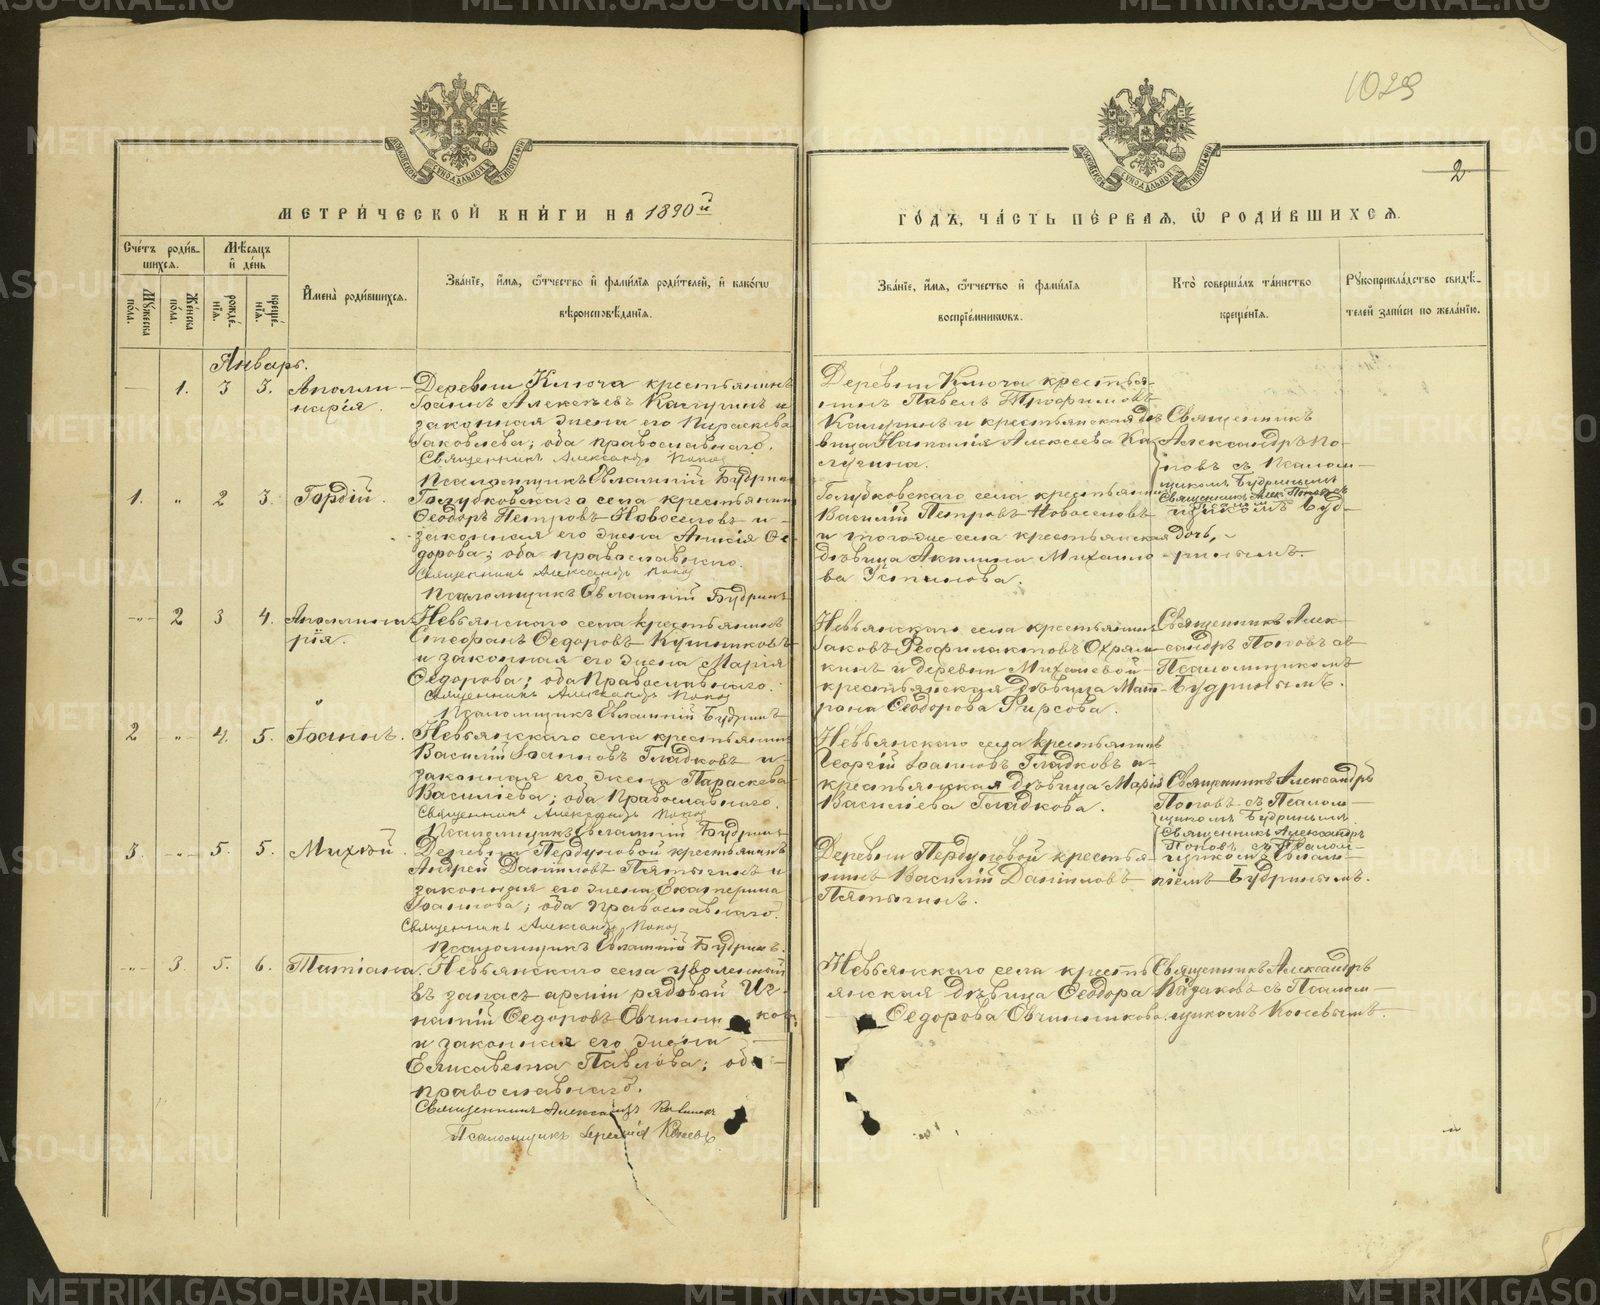 1029
2
МОСКОВСКОЙ СУНОДАЛЬНОЙ ТИПОГРАФІИ
МОСКОВСКОЙ СУНОДАЛЬНОЙ ТИПОГРАФІИ
МЕТРИ́ЧЕСКОЙ КНИ́ГИ НА 1890й
ГО́ДЪ, ЧА́СТЬ ПЕ́РВАѦ, Ѡ҆ РОДИ́ВШИХСѦ.
Сче́тъ роди́в-
шихсѧ.
Мѣ́сѧцъ
и҆ де́нь
Мꙋ́жеска
по́ла.
Же́нска
по́ла.
рожде́-
нїѧ.
креще́-
нїѧ.
И҆мена̀ роди́вшихсѧ.
Зва́нїе, и҆́мѧ, ѻ҆́тчество и҆ фамі́лїѧ роди́телей, и҆ како́гѡ
вѣроисповѣ́данїѧ.
Зва́нїе, и҆́мѧ, ѻ҆́тчество и҆ фамі́лїѧ
воспрїе́мникѡвъ.
Кто̀ соверша́лъ та́инство
креще́нїѧ.
Рꙋкоприкла́дство свидѣ́-
телей за́писи по жела́нїю.
Январь.
1. 3 3. Аполли-
нарія.
Деревни Ключа крестьянинъ
Іоаннъ Алексѣевъ Калугинъ и
законная жена его Параскева
Іаковлева; оба православнаго.
Священникъ Александръ Попов
Псаломщикъ Евлампій Будринъ
Деревни Ключа крестья-
нинъ Павелъ Трофимовъ
Калугинъ и крестьянская дѣ-
вица Наталія Алексеева Ка-
лугина.
Священникъ
Александръ По-
повъ съ Псалом-
щикомъ Будринымъ
1. " 2 3. Гордій.
Голубковскаго села крестьянин
Ѳеодоръ Петровъ Новоселовъ и
законная его жена Анисія Ѳе-
дорова; оба православнаго.
Священникъ Александръ Попов
Псаломщикъ Евлампій Будринъ
Голубковскаго села крестьянин
Василій Петровъ Новоселовъ
и того-же села крестьянская дочь,
дѣвица Акилина Михаило-
ва Устинова.
Священникъ Алек. Поповъ съ
Псаломщикомъ Буд-
ринымъ.
2 3 4. Аполлина-
рія.
Невьянскаго села крестьянинъ
Стефанъ Ѳедоровъ Кушниковъ
и законная его жена Марія
Ѳедорова; оба Православнаго.
Священникъ Александръ Попов
Псаломщикъ Евлампій Будринъ
Невьянскаго села крестьянинъ
Іаковъ Ѳеофилактовъ Охрям-
кинъ и деревни Михалевой
крестьянская дѣвица Мат-
рона Ѳеодорова Фирсова.
Священникъ Алек-
сандръ Поповъ съ
Псаломщикомъ
Будринымъ.
2 " 4. 5. Іоаннъ.
Невьянскаго села крестьянинъ
Василій Іоанновъ Гладковъ и
законная его жена Параскева
Василіева; оба Православнаго.
Священникъ Александръ Попов
Псаломщикъ Евлампій Будринъ
Невьянскаго села крестьянинъ
Георгій Іоанновъ Гладковъ и
крестьянская дѣвица Марія
Василіева Гладкова.
Священникъ Александръ
Поповъ съ Псалом-
щикомъ Будринымъ.
3. " 5. 5. Михѣй.
Деревни Пердуновой крестьянинъ
Андрей Даніиловъ Пятыгинъ и
законная его жена Екатерина
Іоаннова; оба Православнаго.
Священникъ Александръ Попов
Псаломщикъ Евлампій Будринъ.
Деревни Пердуновой крестья-
нинъ Василій Даніиловъ
Пятыгинъ.
Священникъ Александръ
Поповъ съ Псалом-
щикомъ Евлам-
піемъ Будринымъ.
" 3. 5. 6. Татіана.
Невьянскаго села уволенный
въ запасъ арміи рядовой Иг-
натій Ѳедоровъ Овчинников
и законная его жена
Елисавета Павлова; оба
православнаго.
Священникъ Александръ Казаковъ
Псаломщикъ Коневъ
Невьянскаго села кресть-
янская дѣвица Ѳеодора
Ѳедорова Овчинникова.
Священникъ Александръ
Казаковъ съ Псалом-
щикомъ Коневымъ.
METRIKI.GASO-URAL.RU